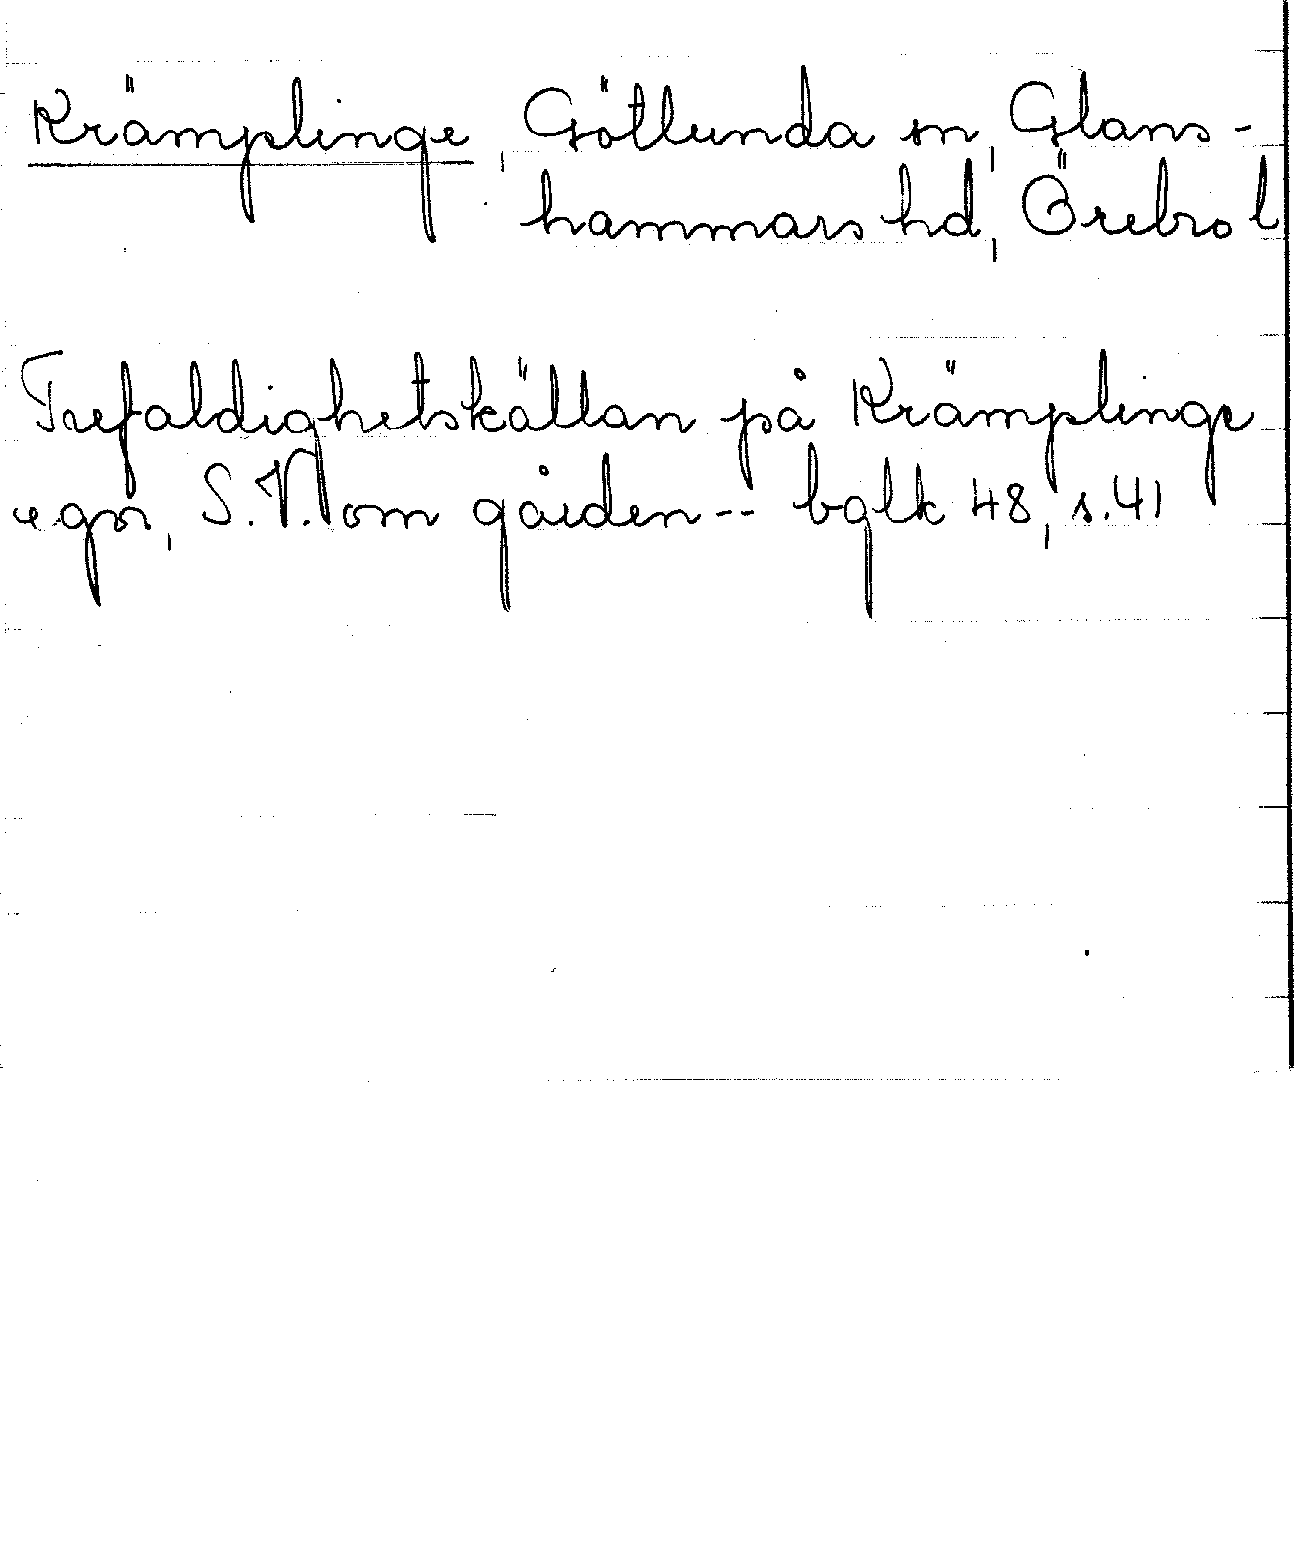 Krämplinge, Götlunda sn, Glans-
hammars hd, Örebro l
Trefaldighetskällan på Krämplinge
egor, S.V. om gården -- bglk 48, s. 41